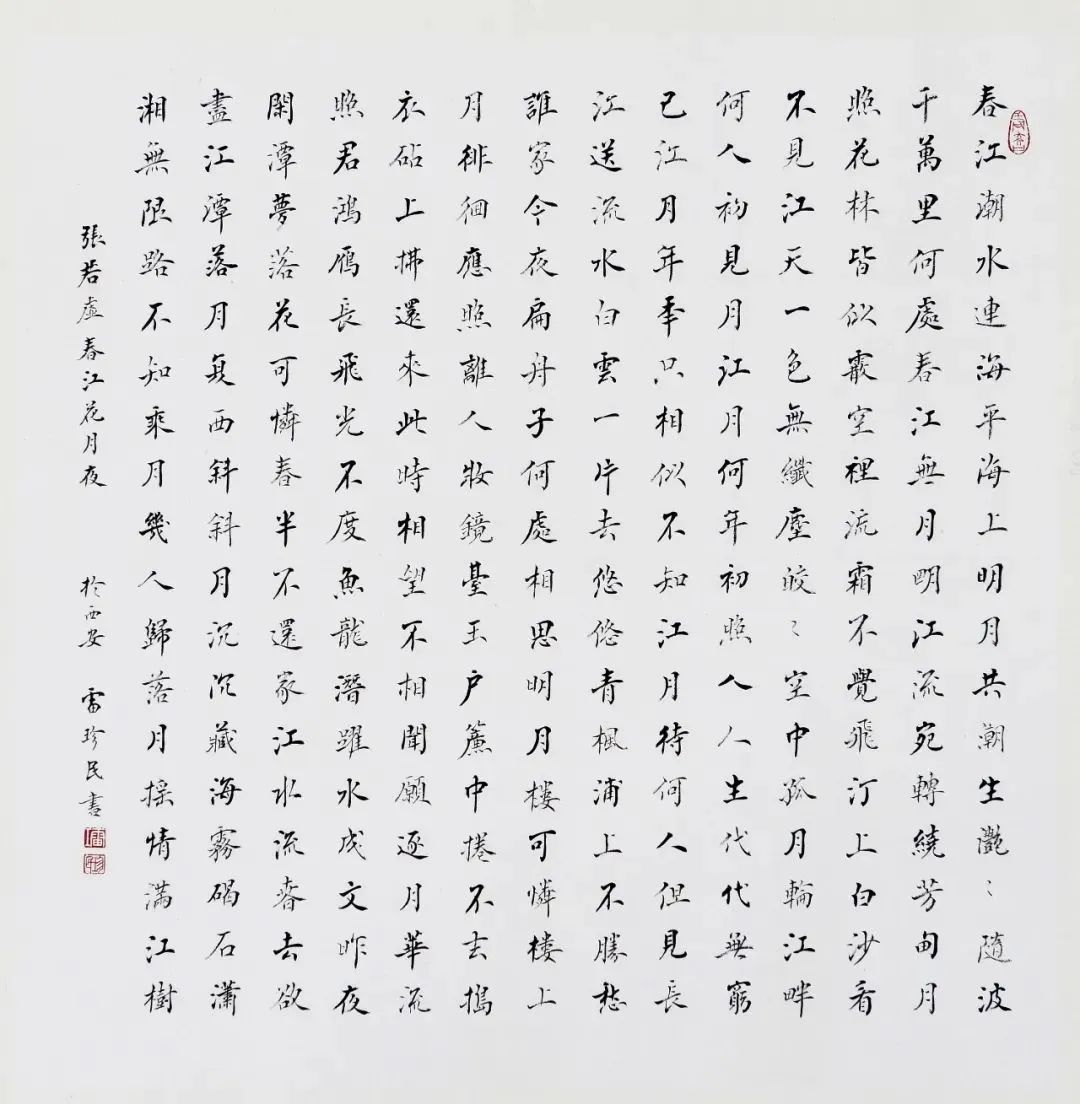 春江潮水連海平海上明月共潮生灧〻隨波
千萬里何處春江無月明江流宛轉繞芳甸月
照花林皆似霰空裡流霜不覺飛汀上白沙看
不見江天一色無纖塵皎〻空中孤月輪江畔
何人初見月江月何年初照人人生代代無窮
已江月年秊只相似不知江月待何人但見長
江送流水白雲一片去悠悠青楓浦上不勝愁
誰家今夜扁舟子何處相思明月楼可憐楼上
月徘徊應照離人妝鏡臺玉户簾中捲不去搗
衣砧上拂還來此時相望不相聞願逐月華流
照君鴻鴈長飛光不度魚龍潛躍水成文昨夜
閑潭夢落花可憐春半不還家江水流春去欲
盡江潭落月復西斜斜月沉沉藏海霧碣石瀟
湘無限路不知乘月幾人歸落月摇情满江樹
張若虛春江花月夜 於西安 雷珍民書